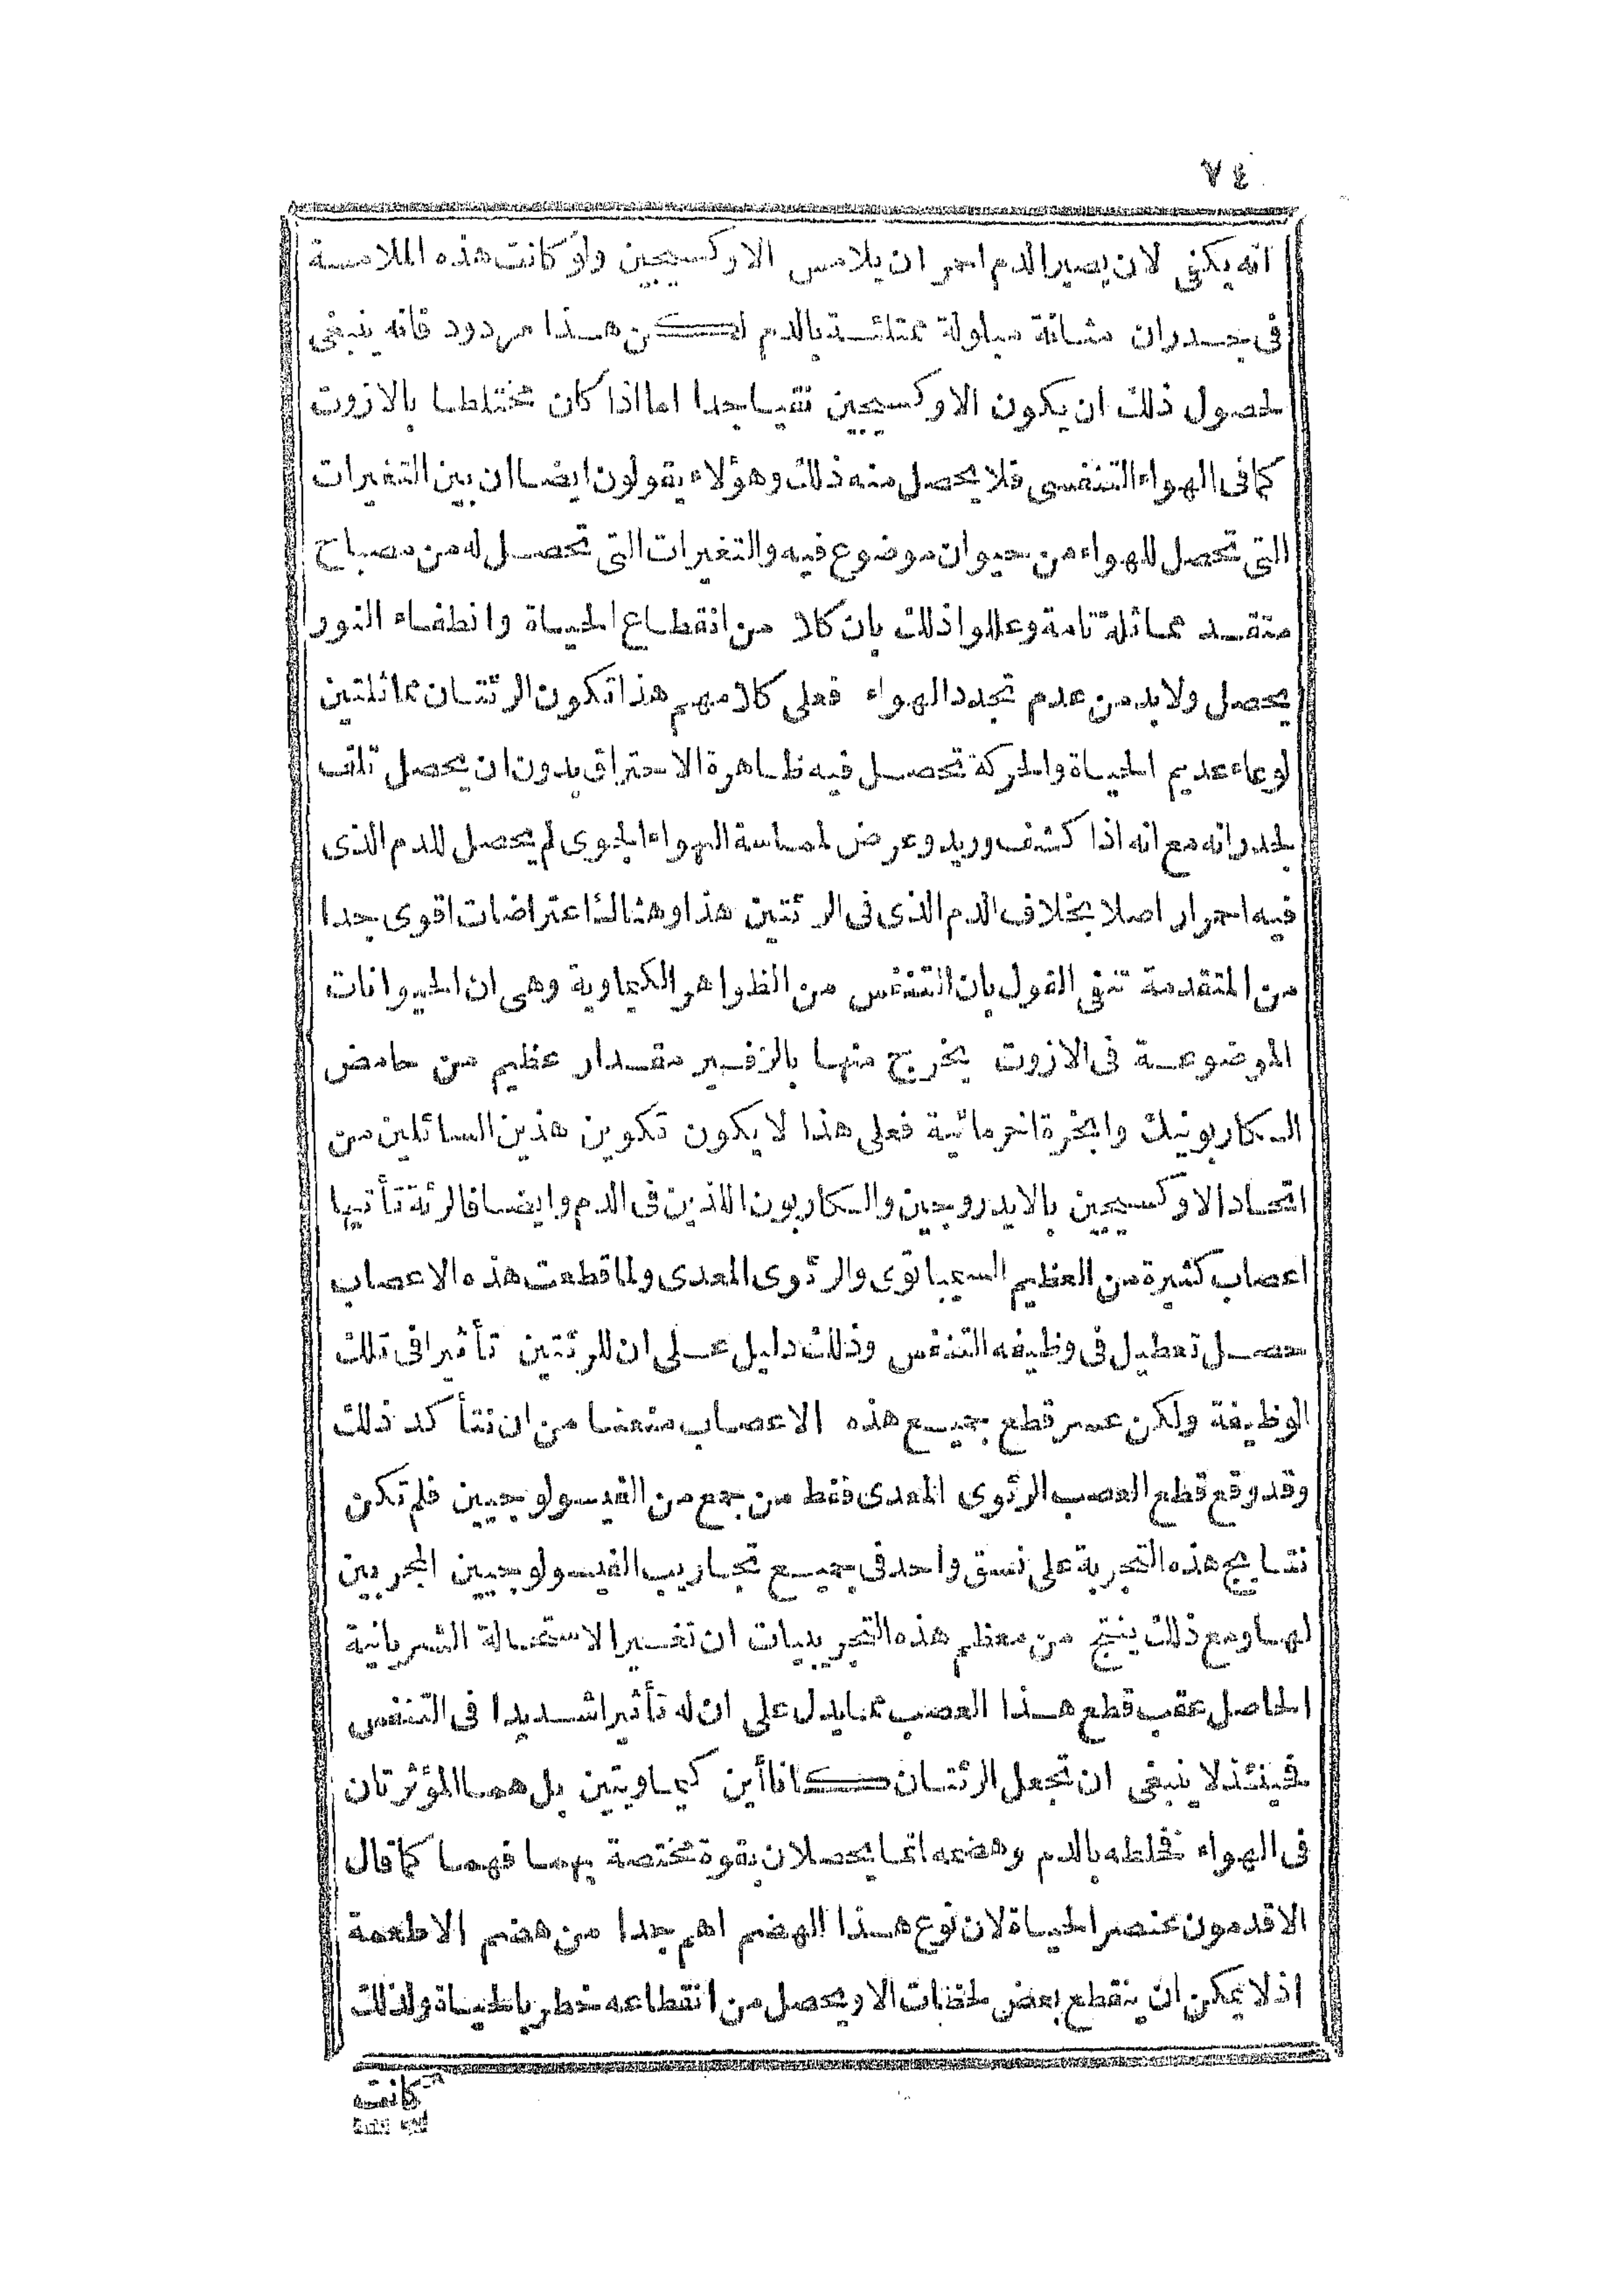 ٧٤
انه يكفى لان يصير الدم احمر ان يلامس الاوكسيجين ولو كانت هذه الملامسة
فى جدران مثانة مبلولة ممتلئة بالدم لكن هذا مردود فانه ينبغى
لحصول ذلك ان يكون الاوكسيجين نقيا جدا اما اذا كان مختلطا بالازوت
كما فى الهواء التنفسى فلا يحصل منه ذلك وهؤلاء يقولون ايضا ان بين التغيرات
التى تحصل للهواء من حيوان موضوع فيه والتغيرات التى تحصل له من مصباح
متقد مماثلة تامة وعللوا ذلك بان كلا من انقطاع الحياة وانطفاء النور
يحصل ولابد من عدم تجدد الهواء فعلى كلامهم هذا تكون الرئتان مماثلتين
لوعاء عديم الحياة والحركة تحصل فيه ظاهرة الاحتراق بدون ان يحصل تلف
لجدرانه مع انه اذا كشف وريد وعرض لمماسة الهواء الجوى لم يحصل للدم الذى
فيه احمرار اصلا بخلاف الدم الذى فى الرئتين هذا وهناك اعتراضات اقوى جدا
من المتقدمة تنفى القول بان التنفس من الظواهر الكيماوية وهى ان الحيوانات
الموضوعة فى الازوت يخرج منها بالزفير مقدار عظيم من حامض
الكاربونيك وابخرة اخر مائية فعلى هذا لا يكون تكوين هذين السائلين من
اتحاد الاوكسيجين بالايدروجين والكاربون اللذين فى الدم وايضا فالرئة تأتيها
اعصاب كثيرة من العظيم السيمباتوى والرئوى المعدى ولما قطعت هذه الاعصاب
حصل تعطيل فى وظيفه التنفس وذلك دليل على ان للرئتين تأثيرا فى تلك
الوظيفة ولكن عسر قطع جميع هذه الاعصاب منعنا من ان نتأكد ذلك
وقد وقع قطع العصب الرئوى المعدى فقط من جمع من الفيسولوجيين فلم تكن
نتايج هذه التجربة على نسق واحد فى جميع تجاريب الفيسولوجيين المجربين
لها ومع ذلك ينتج من معظم هذه التجريبيات ان تغير الاستحالة الشريانية
الحاصل عقب قطع هذا العصب مما يدل على ان له تأثيرا شديدا فى التنفس
فحينئذ لا ينبغى ان تجعل الرئتان كاناأين كيماويتين بل هما المؤثرتان
فى الهواء فخلطه بالدم وهضمه انما يحصلان بقوة مختصة بهما فهما كما قال
الاقدمون عنصر الحياة لان نوع هذا الهضم اهم جدا من هضم الاطعمة
اذ لا يمكن ان ينقطع بعض لحظات الا ويحصل من انقطاعه خطر بالحياة ولذلك
كانت